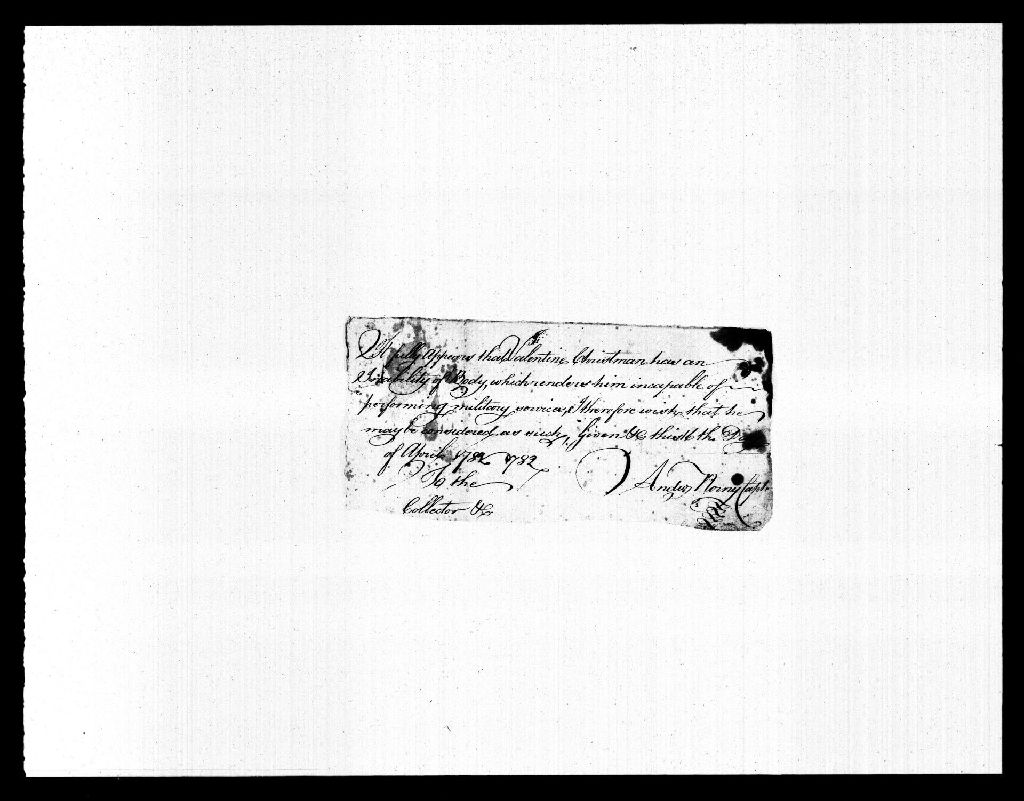 It fully Appears that Valentine Christman has an
Disability of Body, which renders him incapable of
performing military service, I therefore wish that he
may be considered as such, Given &c this the
of April 1782 1782
To the
Collector &c
Andw Capt.